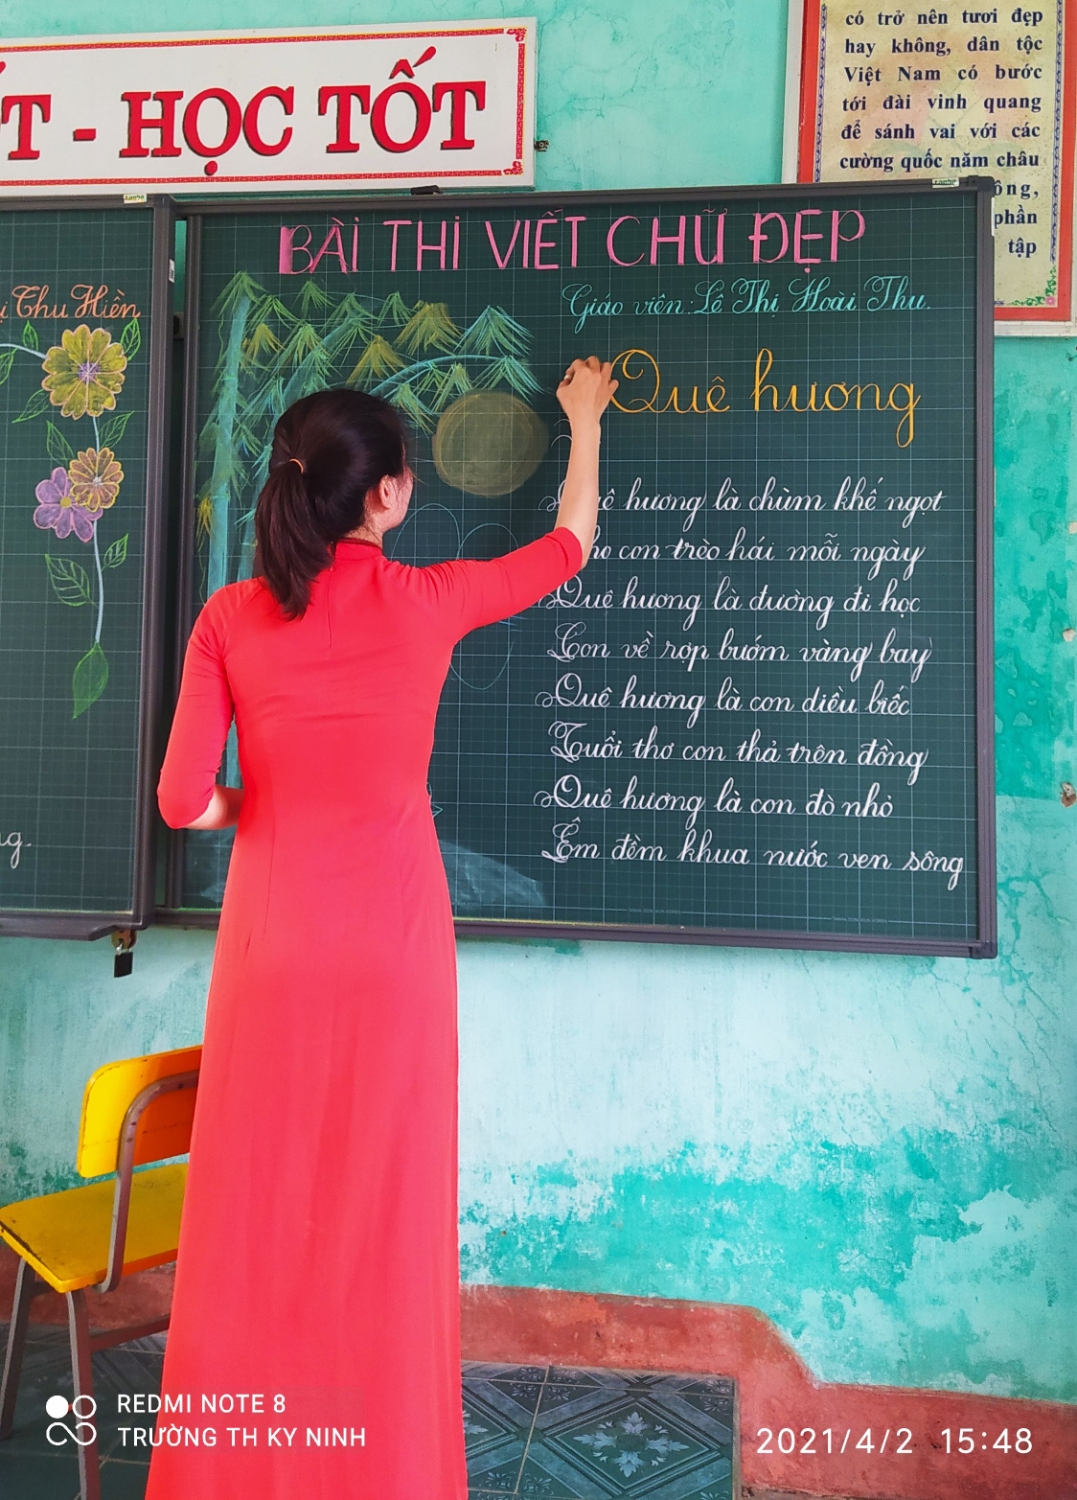 T - HỌC TỐT
có trở nên tươi đẹp
hay không, dân tộc
Việt Nam có bước
tới đài vinh quang
để sánh vai với các
cường quốc năm châu
ông,
phần
tập
Thu Hiền
BÀI THI VIẾT CHỮ ĐẸP
Giáo viên: Lê Thị Hoài Thu.
Quê hương
hương là chùm khế ngọt
con trèo hái mỗi ngày
Quê hương là đường đi học
Con về rợp bướm vàng bay
Quê hương là con diều biếc
Tuổi thơ con thả trên đồng
Quê hương là con đò nhỏ
Êm đềm khua nước ven sông
REDMI NOTE 8
TRƯỜNG TH KY NINH
2021/4/2 15:48